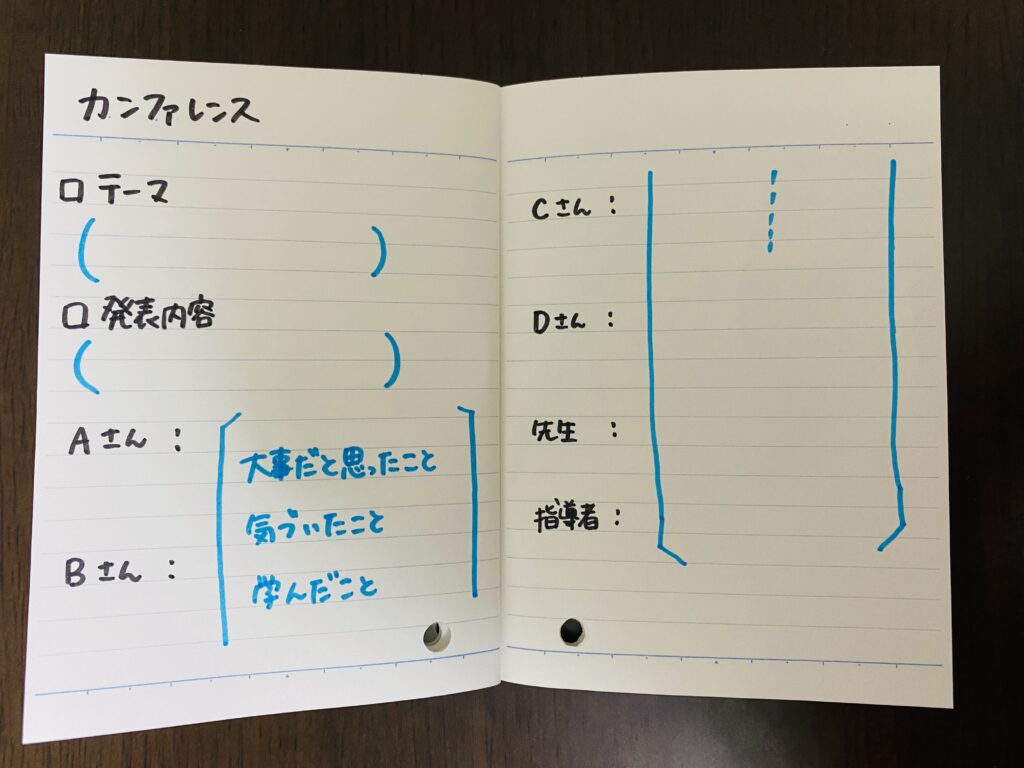 カンファレンス
□ テーマ
(　　　　　)
□ 発表内容
(　　　　　)
Aさん：
大事だと思ったこと
気づいたこと
Bさん：
学んだこと
Cさん：
Dさん：
先生：
指導者：